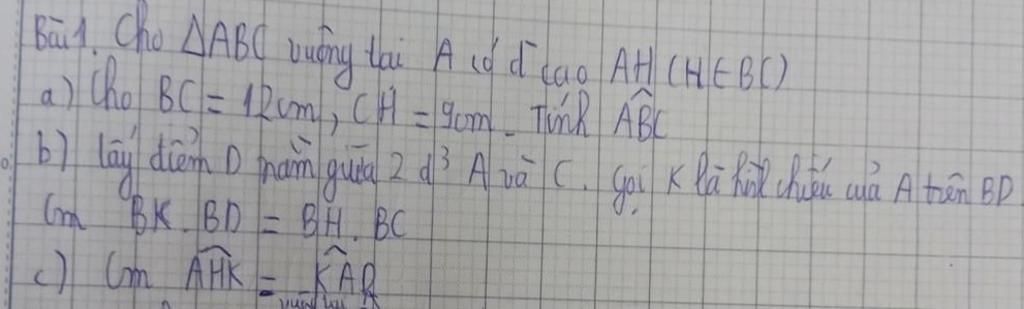 Bài 1. Cho ΔABC vuông tại A có đ cao AH (H∈BC)
a) Cho BC = 12cm, CH = 9cm. Tính ABC
b) lấy điểm D nằm giữa 2 đ³ A và C. gọi K là hình chiếu của A trên BD
Cm BK. BD = BH. BC
c) Cm AHK = KAB